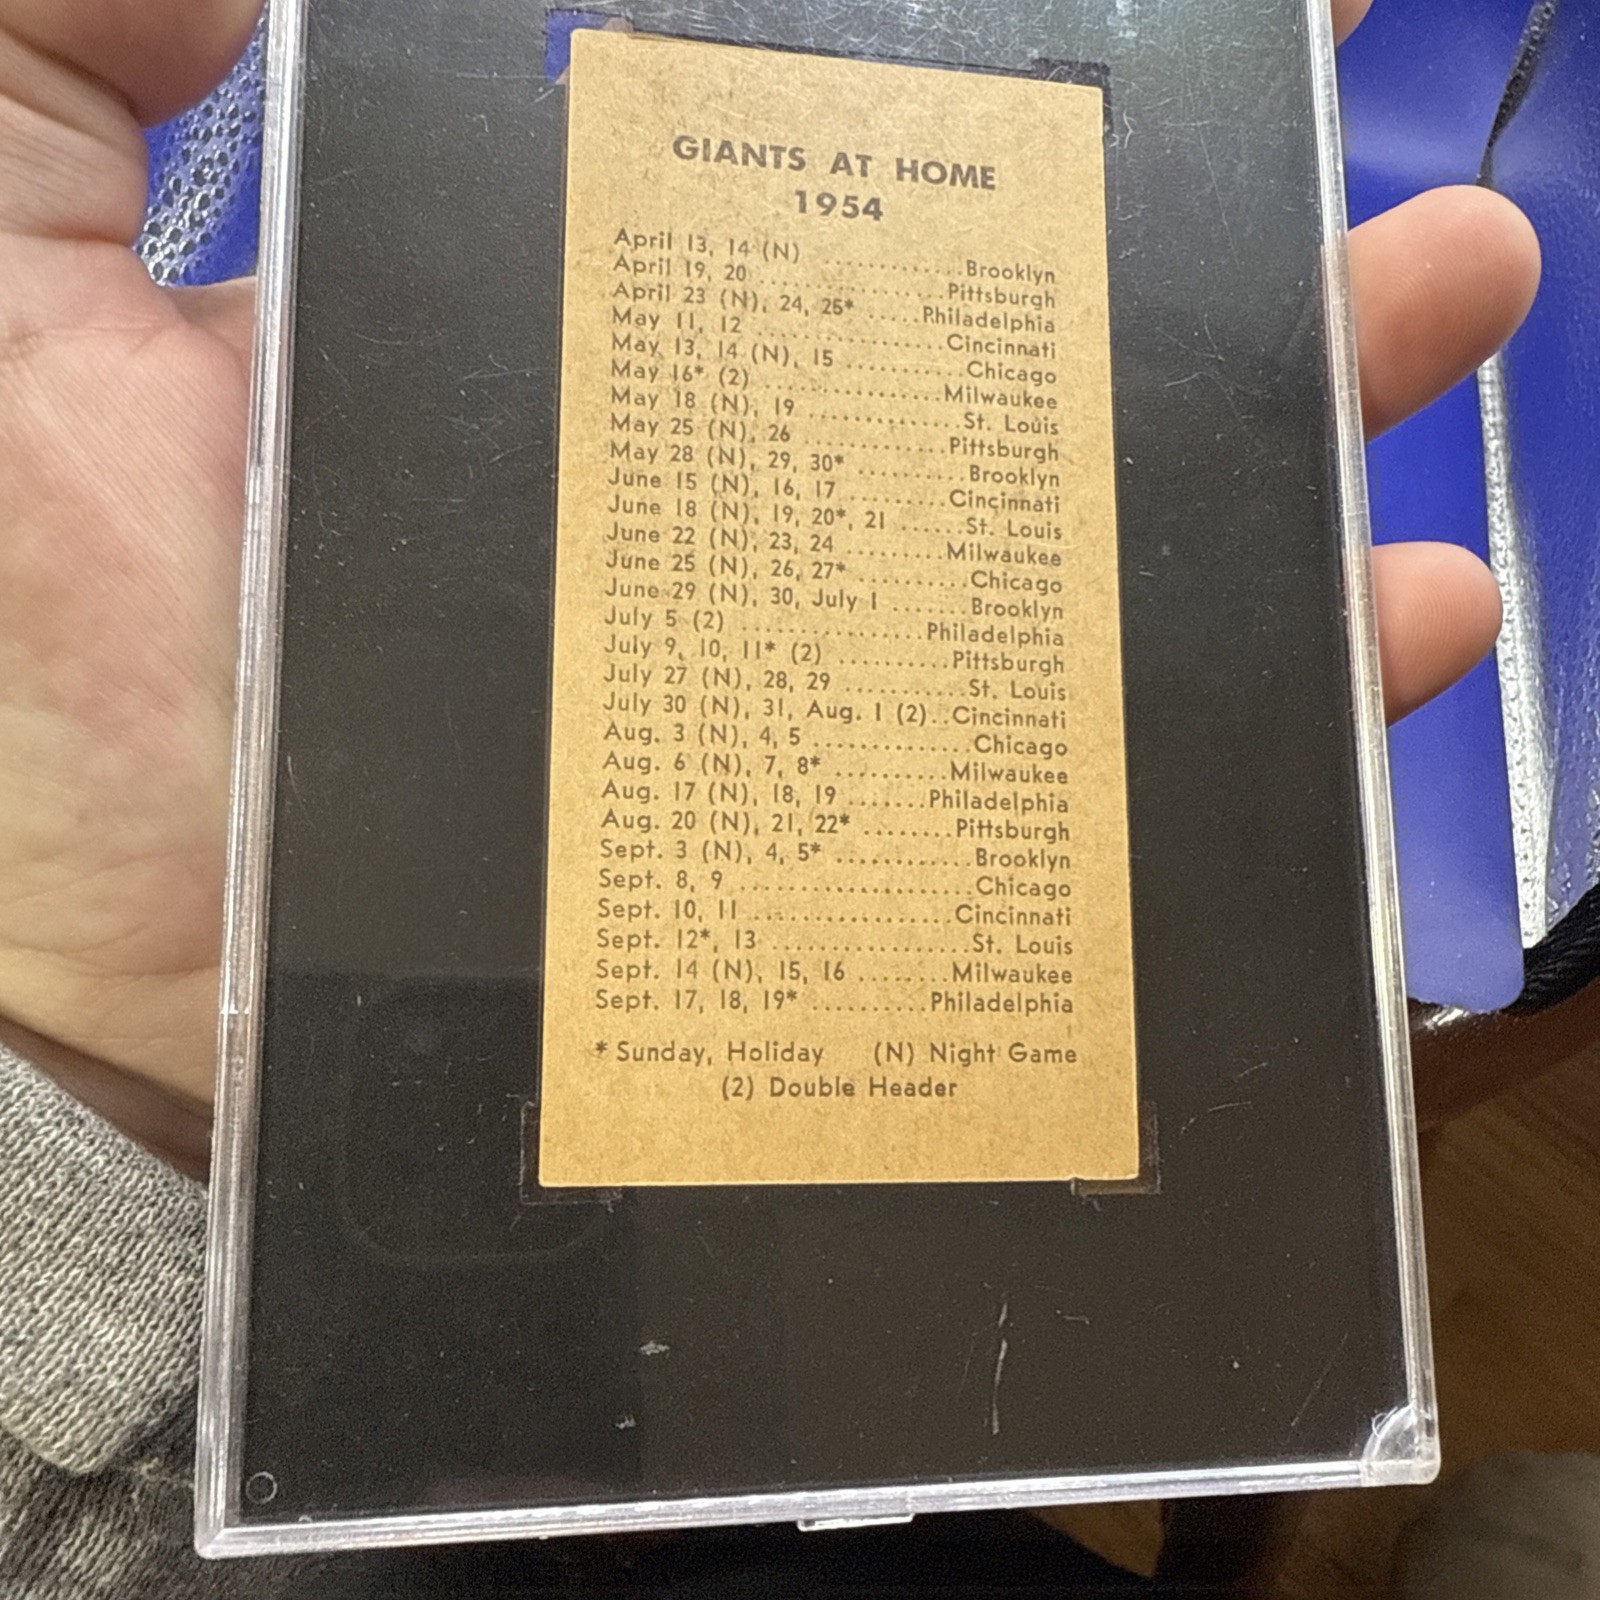 GIANTS AT HOME
1954
April 13, 14 (N) ............Brooklyn
April 19, 20 ................Pittsburgh
April 23 (N), 24, 25* .....Philadelphia
May 11, 12 ................Cincinnati
May 13, 14 (N), 15 ..........Chicago
May 16* (2) ...............Milwaukee
May 18 (N), 19 .............St. Louis
May 25 (N), 26 ............Pittsburgh
May 28 (N), 29, 30* ..........Brooklyn
June 15 (N), 16, 17 .........Cincinnati
June 18 (N), 19, 20*, 21 ......St. Louis
June 22 (N), 23, 24 .........Milwaukee
June 25 (N), 26, 27* ..........Chicago
June 29 (N), 30, July 1 .......Brooklyn
July 5 (2) ................Philadelphia
July 9, 10, 11* (2) ..........Pittsburgh
July 27 (N), 28, 29 ...........St. Louis
July 30 (N), 31, Aug. 1 (2)..Cincinnati
Aug. 3 (N), 4, 5 ..............Chicago
Aug. 6 (N), 7, 8* ..........Milwaukee
Aug. 17 (N), 18, 19 .......Philadelphia
Aug. 20 (N), 21, 22* ........Pittsburgh
Sept. 3 (N), 4, 5* ............Brooklyn
Sept. 8, 9 .....................Chicago
Sept. 10, 11 .................Cincinnati
Sept. 12*, 13 .................St. Louis
Sept. 14 (N), 15, 16 ........Milwaukee
Sept. 17, 18, 19* ..........Philadelphia
* Sunday, Holiday (N) Night Game
(2) Double Header